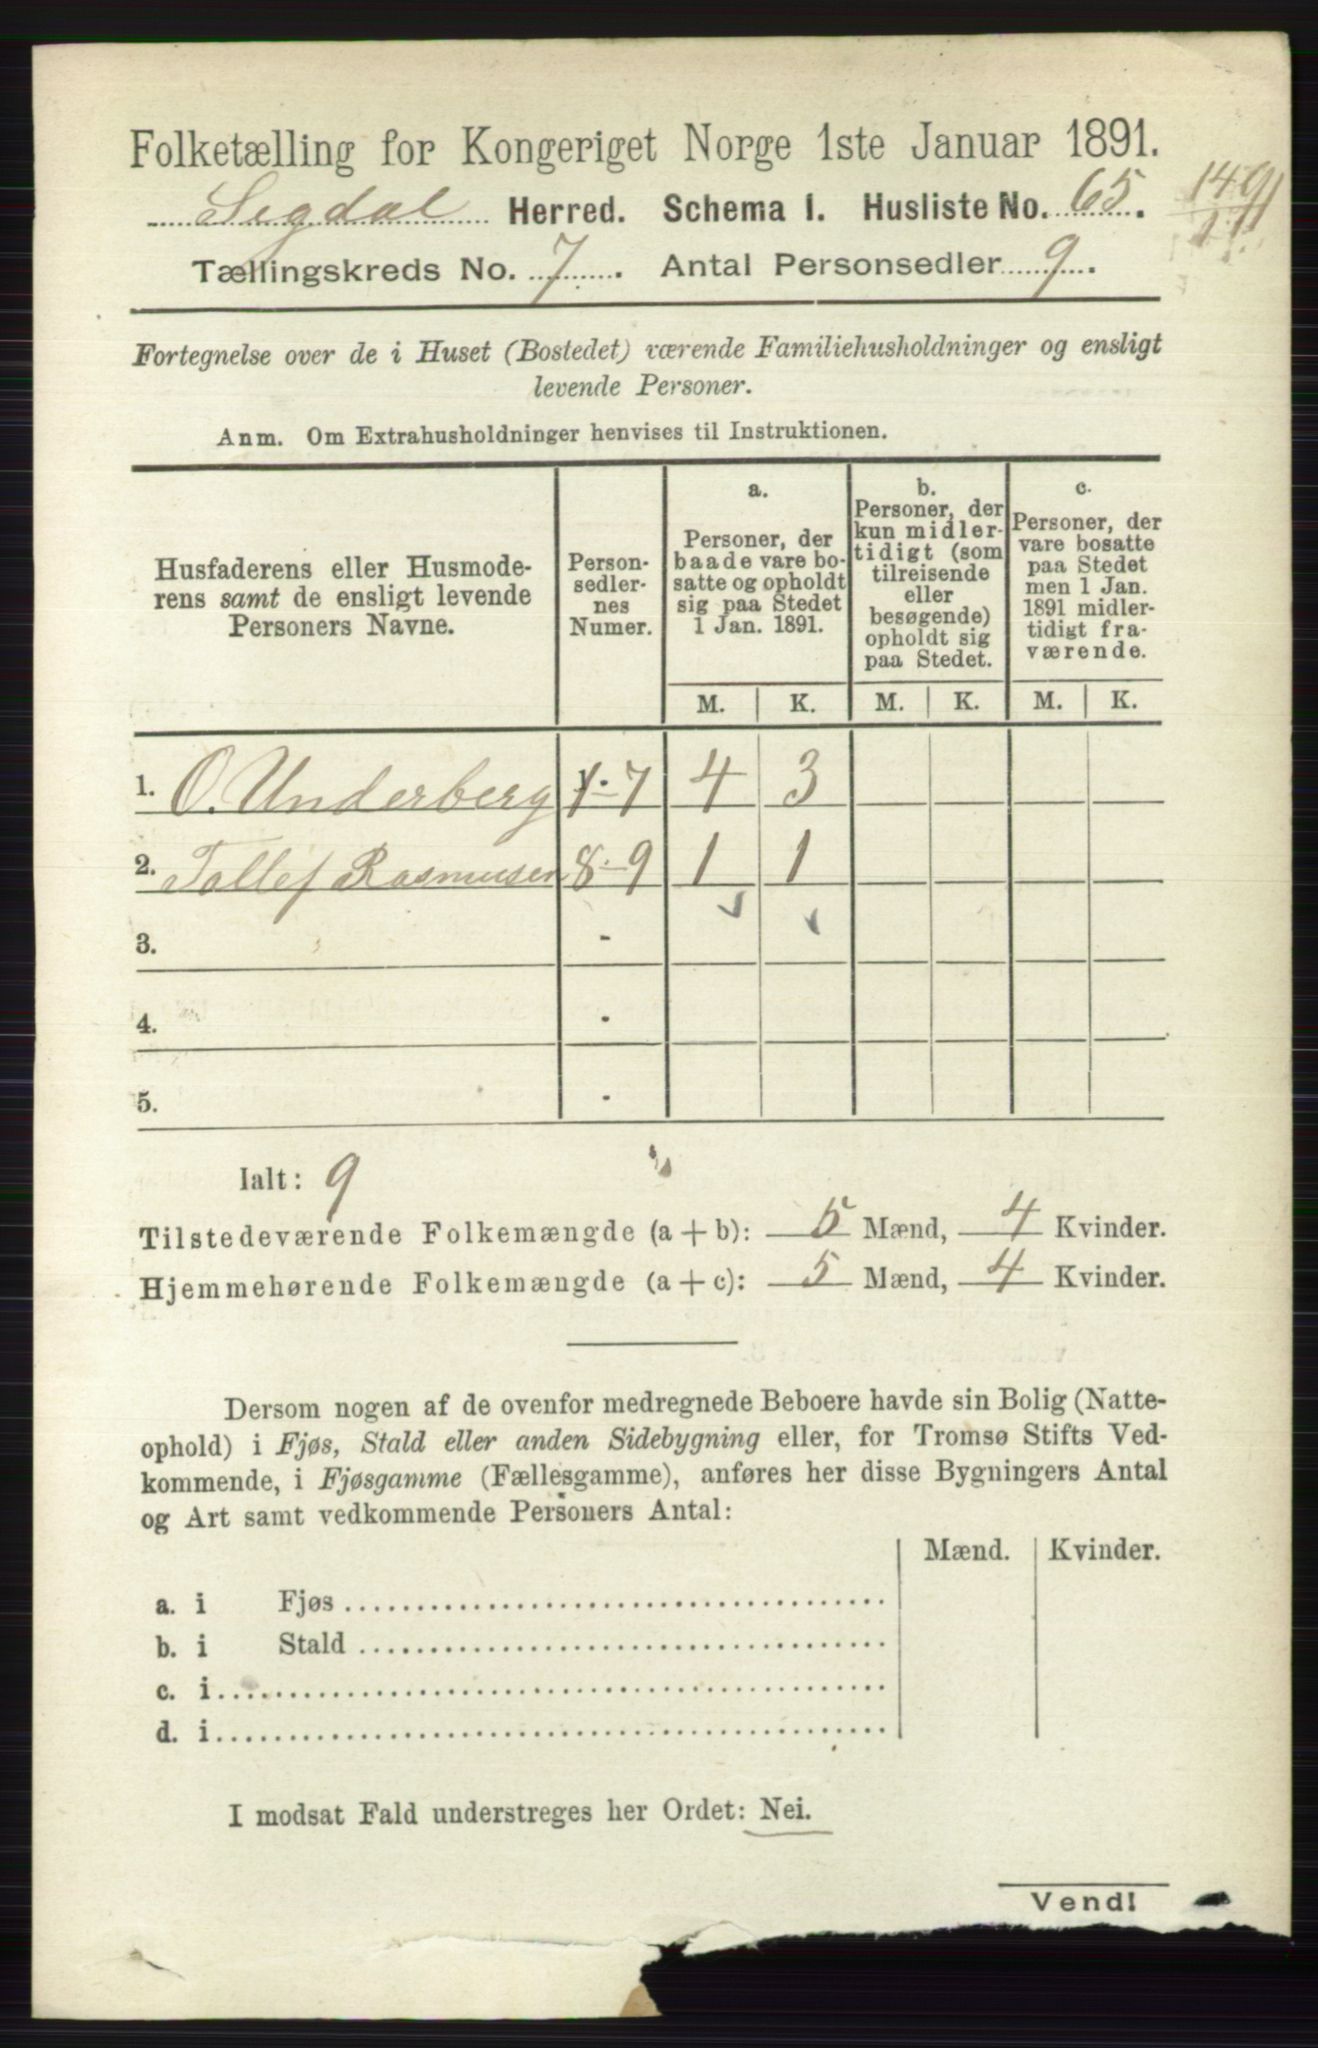 Folketælling for Kongeriget Norge 1ste Januar 1891.
Sigdal Herred. Schema 1. Husliste No. 65.
149
Tællingskreds No. 7. Antal Personsedler 9.
Fortegnelse over de i Huset (Bostedet) værende Familiehusholdninger og ensligt
levende Personer.
Anm. Om Extrahusholdninger henvises til Instruktionen.
Husfaderens eller Husmode-
rens samt de ensligt levende
Personers Navne.
Person-
sedler-
nes
Numer.
a.
Personer, der
baade vare bo-
satte og opholdt
sig paa Stedet
1 Jan. 1891.
b.
Personer, der
kun midler-
tidigt (som
tilreisende
eller
besøgende)
opholdt sig
paa Stedet.
c.
Personer, der
vare bosatte
paa Stedet
men 1 Jan.
1891 midler-
tidigt fra-
værende.
M. K. M. K. M. K.
1. O. Underberg 1-7 4 3
2. Tollef Rasmusen 8-9 1 1
3. -
4. -
5. -
Ialt: 9
Tilstedeværende Folkemængde (a + b): 5 Mænd, 4 Kvinder.
Hjemmehørende Folkemængde (a + c): 5 Mænd, 4 Kvinder.
Dersom nogen af de ovenfor medregnede Beboere havde sin Bolig (Natte-
ophold) i Fjøs, Stald eller anden Sidebygning eller, for Tromsø Stifts Ved-
kommende, i Fjøsgamme (Fællesgamme), anføres her disse Bygningers Antal
og Art samt vedkommende Personers Antal:
Mænd. Kvinder.
a. i Fjøs
b. i Stald
c. i
d. i
I modsat Fald understreges her Ordet: Nei.
Vend!